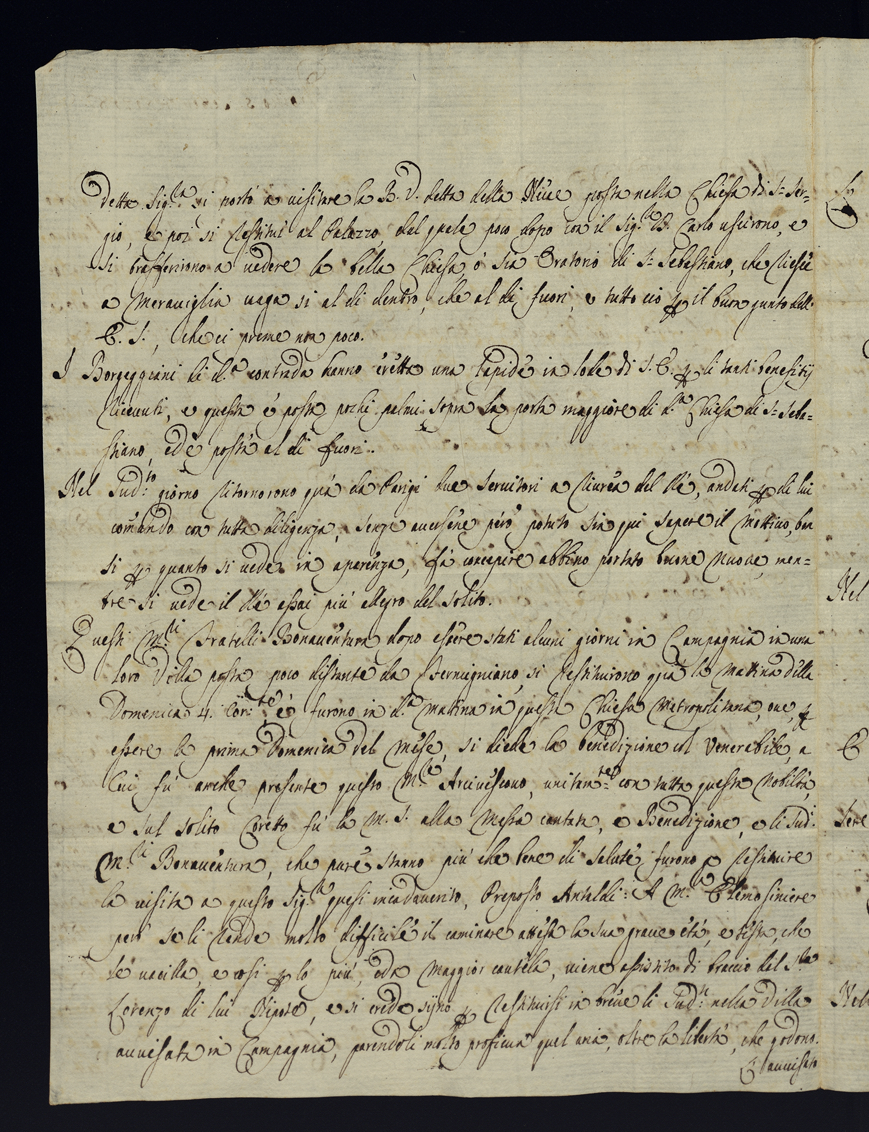 detta Sig.ra si portò a visitare la B. V. detta della Nive posta nella Chiesa di S. Ser=
gio, e poi si restituì al Palazzo, del quale poco dopo con il Sig.r D. Carlo uscirono, e
si trasferirono a vedere la bella Chiesa, ò sia Oratorio di S. Sebastiano, che riesce
a meraviglia vaga sì al di dentro, che al di fuori, e tutto ciò p il buon gusto dell'
E. S., che ci preme non poco.
I Borgeggiani di d.a contrada hanno eretta una Lapide in lode di S. E. p li tanti benefitij
ricevuti, e questa è posta pochi palmi sopra la porta maggiore di d.a Chiesa di S. Seba=
stiano, ed è posta al di fuori.
Nel Sud.to giorno ritornorono quà da Parigi due Servitori a livrea del Rè, andati p di lui
comando con tutta diligenza, senza aversene però potuto sin qui sapere il mottivo, ben
sì p quanto si vede in aparenza, fà concepire abbino portato buone nuove, men=
tre si vede il Rè assai più allegro del solito.
Questi M.ri Fratelli Bonaventura dopo essere stati alcuni giorni in Campagna in una
loro Villa posta poco distante da Sternigniano, si restituirono quà la mattina della
Domenica 4. Cor.te e furono in d.a mattina in questa Chiesa Metropolitana, ove, p
essere la prima Domenica del mese, si diede la benedizione col Venerabile, a
cui fù anche presente questo M.r Arcivescovo, unitam.te con tutta questa Nobiltà,
e sul solito Coretto fù la M. S. alla Messa cantata, e Benedizione, e li Sud.i
M.ri Bonaventura, che pure stanno più che bene di salute, furono p restituire
la visita a questo Sig.r quasi incadaverito, Preposto Antaldi: A M.r Elemosiniere
però se li rende molto difficile il caminare attesa la sua grave età, e testa, che
le vacilla, e così p lo più, ed a maggior cautela, viene assistito di braccio dal S.r
Lorenzo di lui Nipote, e si crede siano p restituirsi in breve li Sud.i nella Villa
avvisata in Campagna, parendoli molto proficua quel aria, oltre la libertà, che godono.
L'avvisato